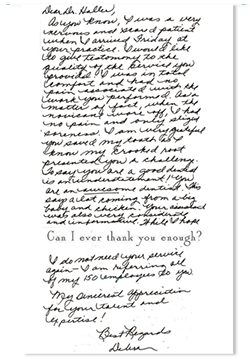 Dear Dr. Haller,
As you know, I was a very
nervous and scared patient
when I arrived Friday at
your practice. I would like
to give testimony to the
quality of the service you
provided. I was in total
comfort and had no
pain associated with the
work you performed. As a
matter of fact, when the
novicane wore off, I had
no pain and only slight
soreness. I am very grateful
you saved my tooth as I
know my crooked root
presented you a challenge.
To say you are a good dentist
is an understatement! You
are an awesome dentist. This
says a lot coming from a big
baby and chicken. Your assistant
was also very considerate
and informative. I hope
Can I ever thank you enough?
I do not need your service
again - I am referring all
of my 150 employees to you.
My sincerest appreciation
for your talent and
expertise!
Best Regards
Debra